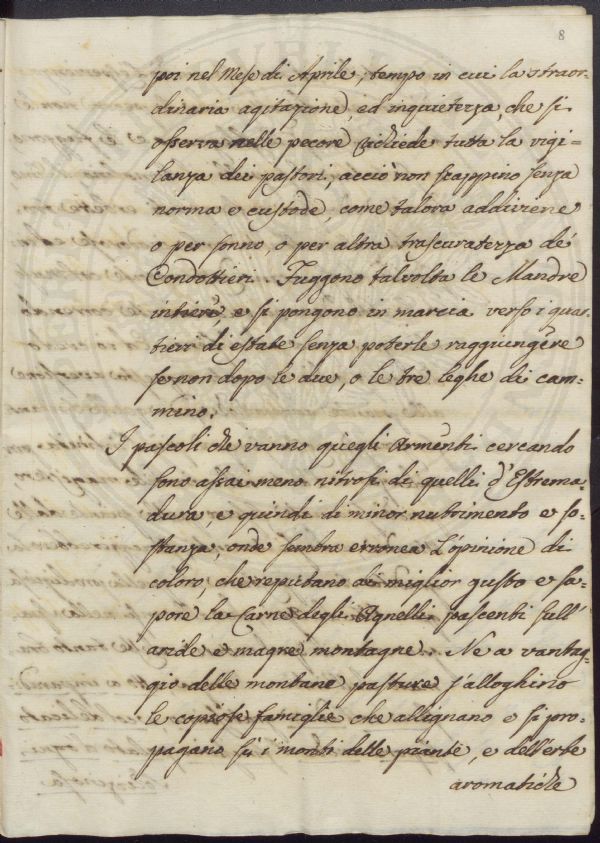 8
poi nel Mese di Aprile, tempo in cui la straor=
dinaria agitazione, ed inquietezza, che si
osserva nelle pecore richiede tutta la vigi=
lanza dei pastori, acciò non scappino senza
norma e custode, come talora addiviene
o per sonno, o per altra trascuratezza de'
Condottieri. Fuggono talvolta le Mandre
intiere, e si pongono in marcia verso i quar=
tieri di estate senza poterle raggiungere
se non dopo le due, o le tre leghe di cam=
mino.
I pascoli che vanno quegli Armenti cercando
sono assai meno nitrosi di quelli d'Estrema=
dura, e quindi di minor nutrimento e so=
stanza, onde sembra erronea l'opinione di
coloro, che reputano di miglior gusto e sa=
pore la Carne degli Agnelli pascenti sull'
aride e magre montagne. Ne a vantag=
gio delle montane pasture s'alloghino
le copiose famiglie che allignano e si pro=
pagano su i monti delle piante, e dell'erbe
aromatiche